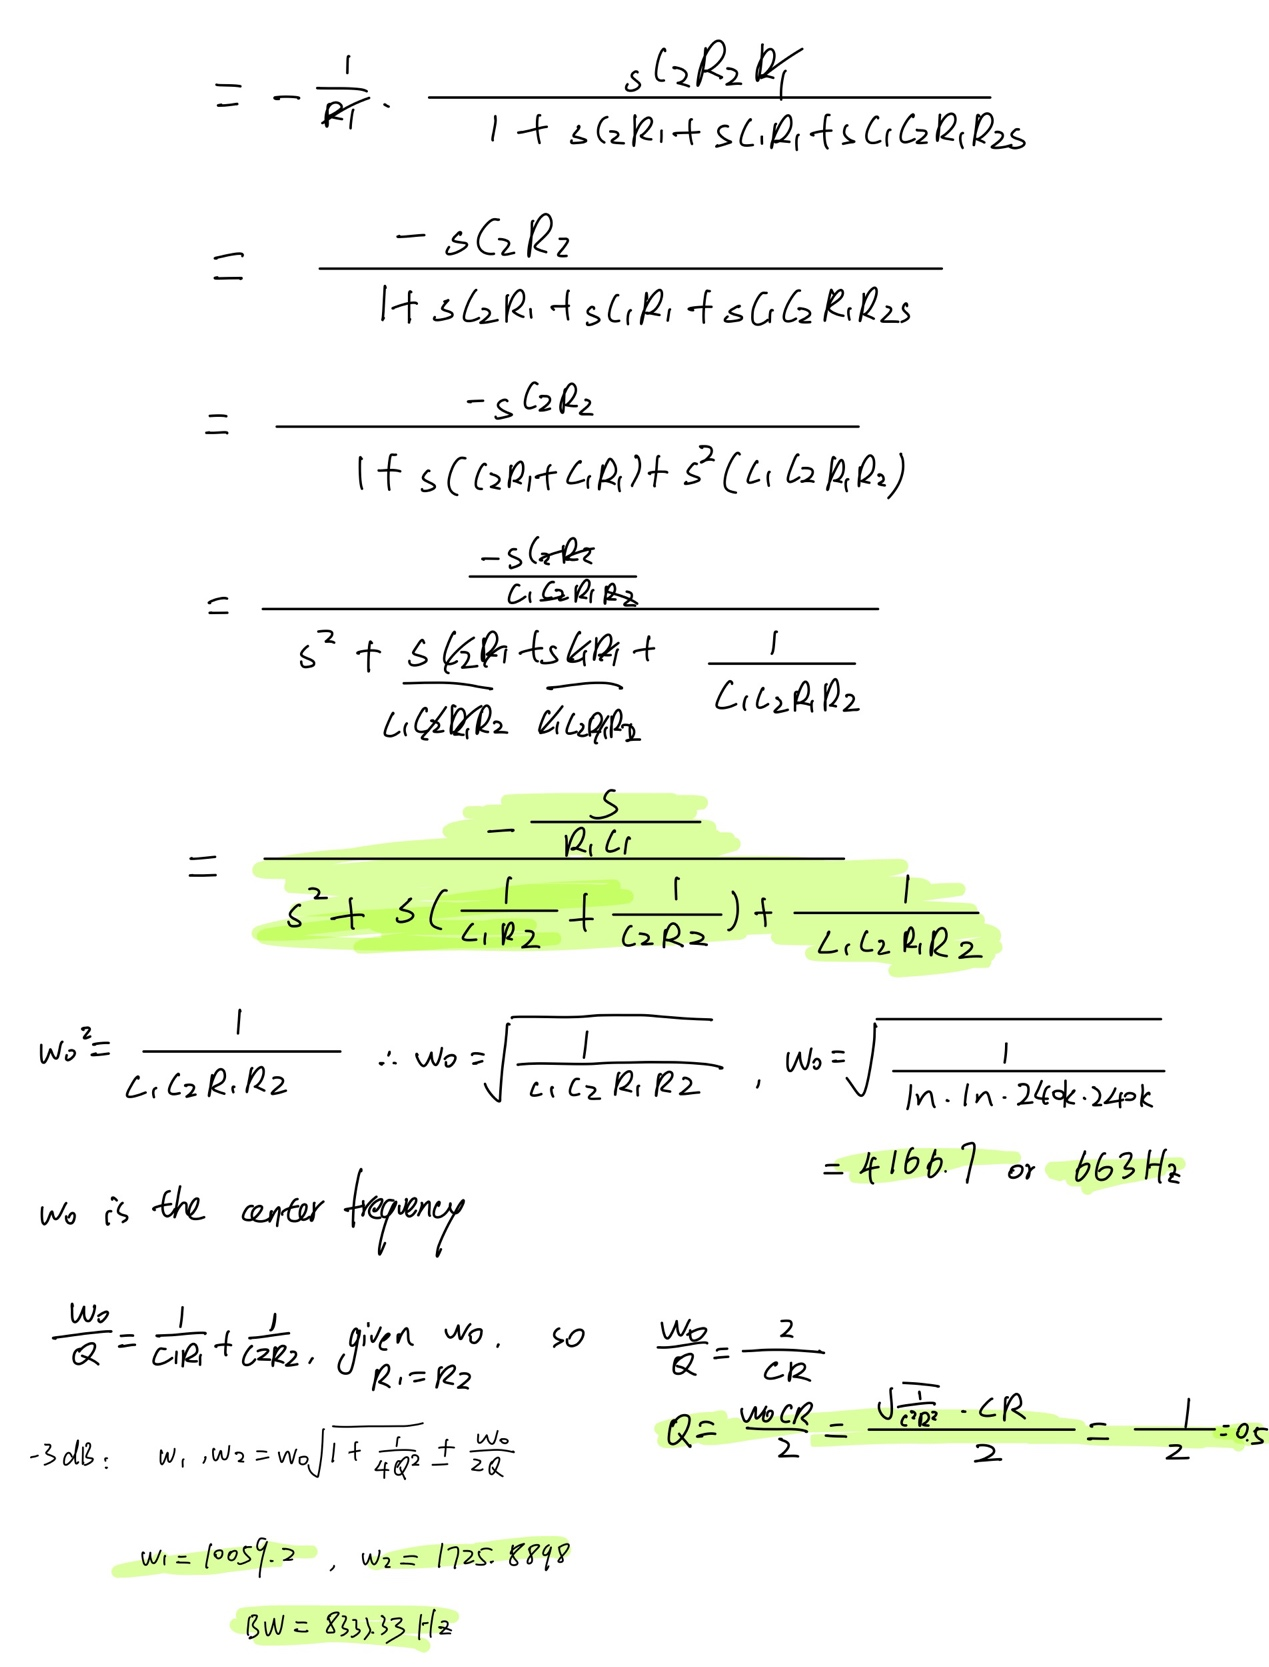 = - 1/R1 · sC2R2R1 / (1 + sC2R1 + sC1R1 + sC1C2R1R2s)
= -sC2R2 / (1 + sC2R1 + sC1R1 + sC1C2R1R2s)
= -sC2R2 / (1 + s(C2R1 + C1R1) + s²(C1C2R1R2))
= (-sC2R2 / C1C2R1R2) / (s² + sC2R1 / C1C2R1R2 + sC1R1 / C1C2R1R2 + 1 / C1C2R1R2)
= (- S / R1C1) / (s² + s(1/C1R2 + 1/C2R2) + 1 / C1C2R1R2)
Wo² = 1 / C1C2R1R2 ∴ Wo = √(1 / C1C2R1R2) , Wo = √(1 / 1n·1n·240k·240k)
= 4166.7 or 663Hz
Wo is the center frequency
Wo/Q = 1/C1R1 + 1/C2R2, given Wo. so Wo/Q = 2/CR
R1 = R2
Q = WoCR/2 = √(1/C²R²) · CR / 2 = 1/2 = 0.5
-3dB: W1, W2 = Wo√(1 + 1/4Q²) ± Wo/2Q
W1 = 10059.2 , W2 = 1725.8898
BW = 8333.33 Hz